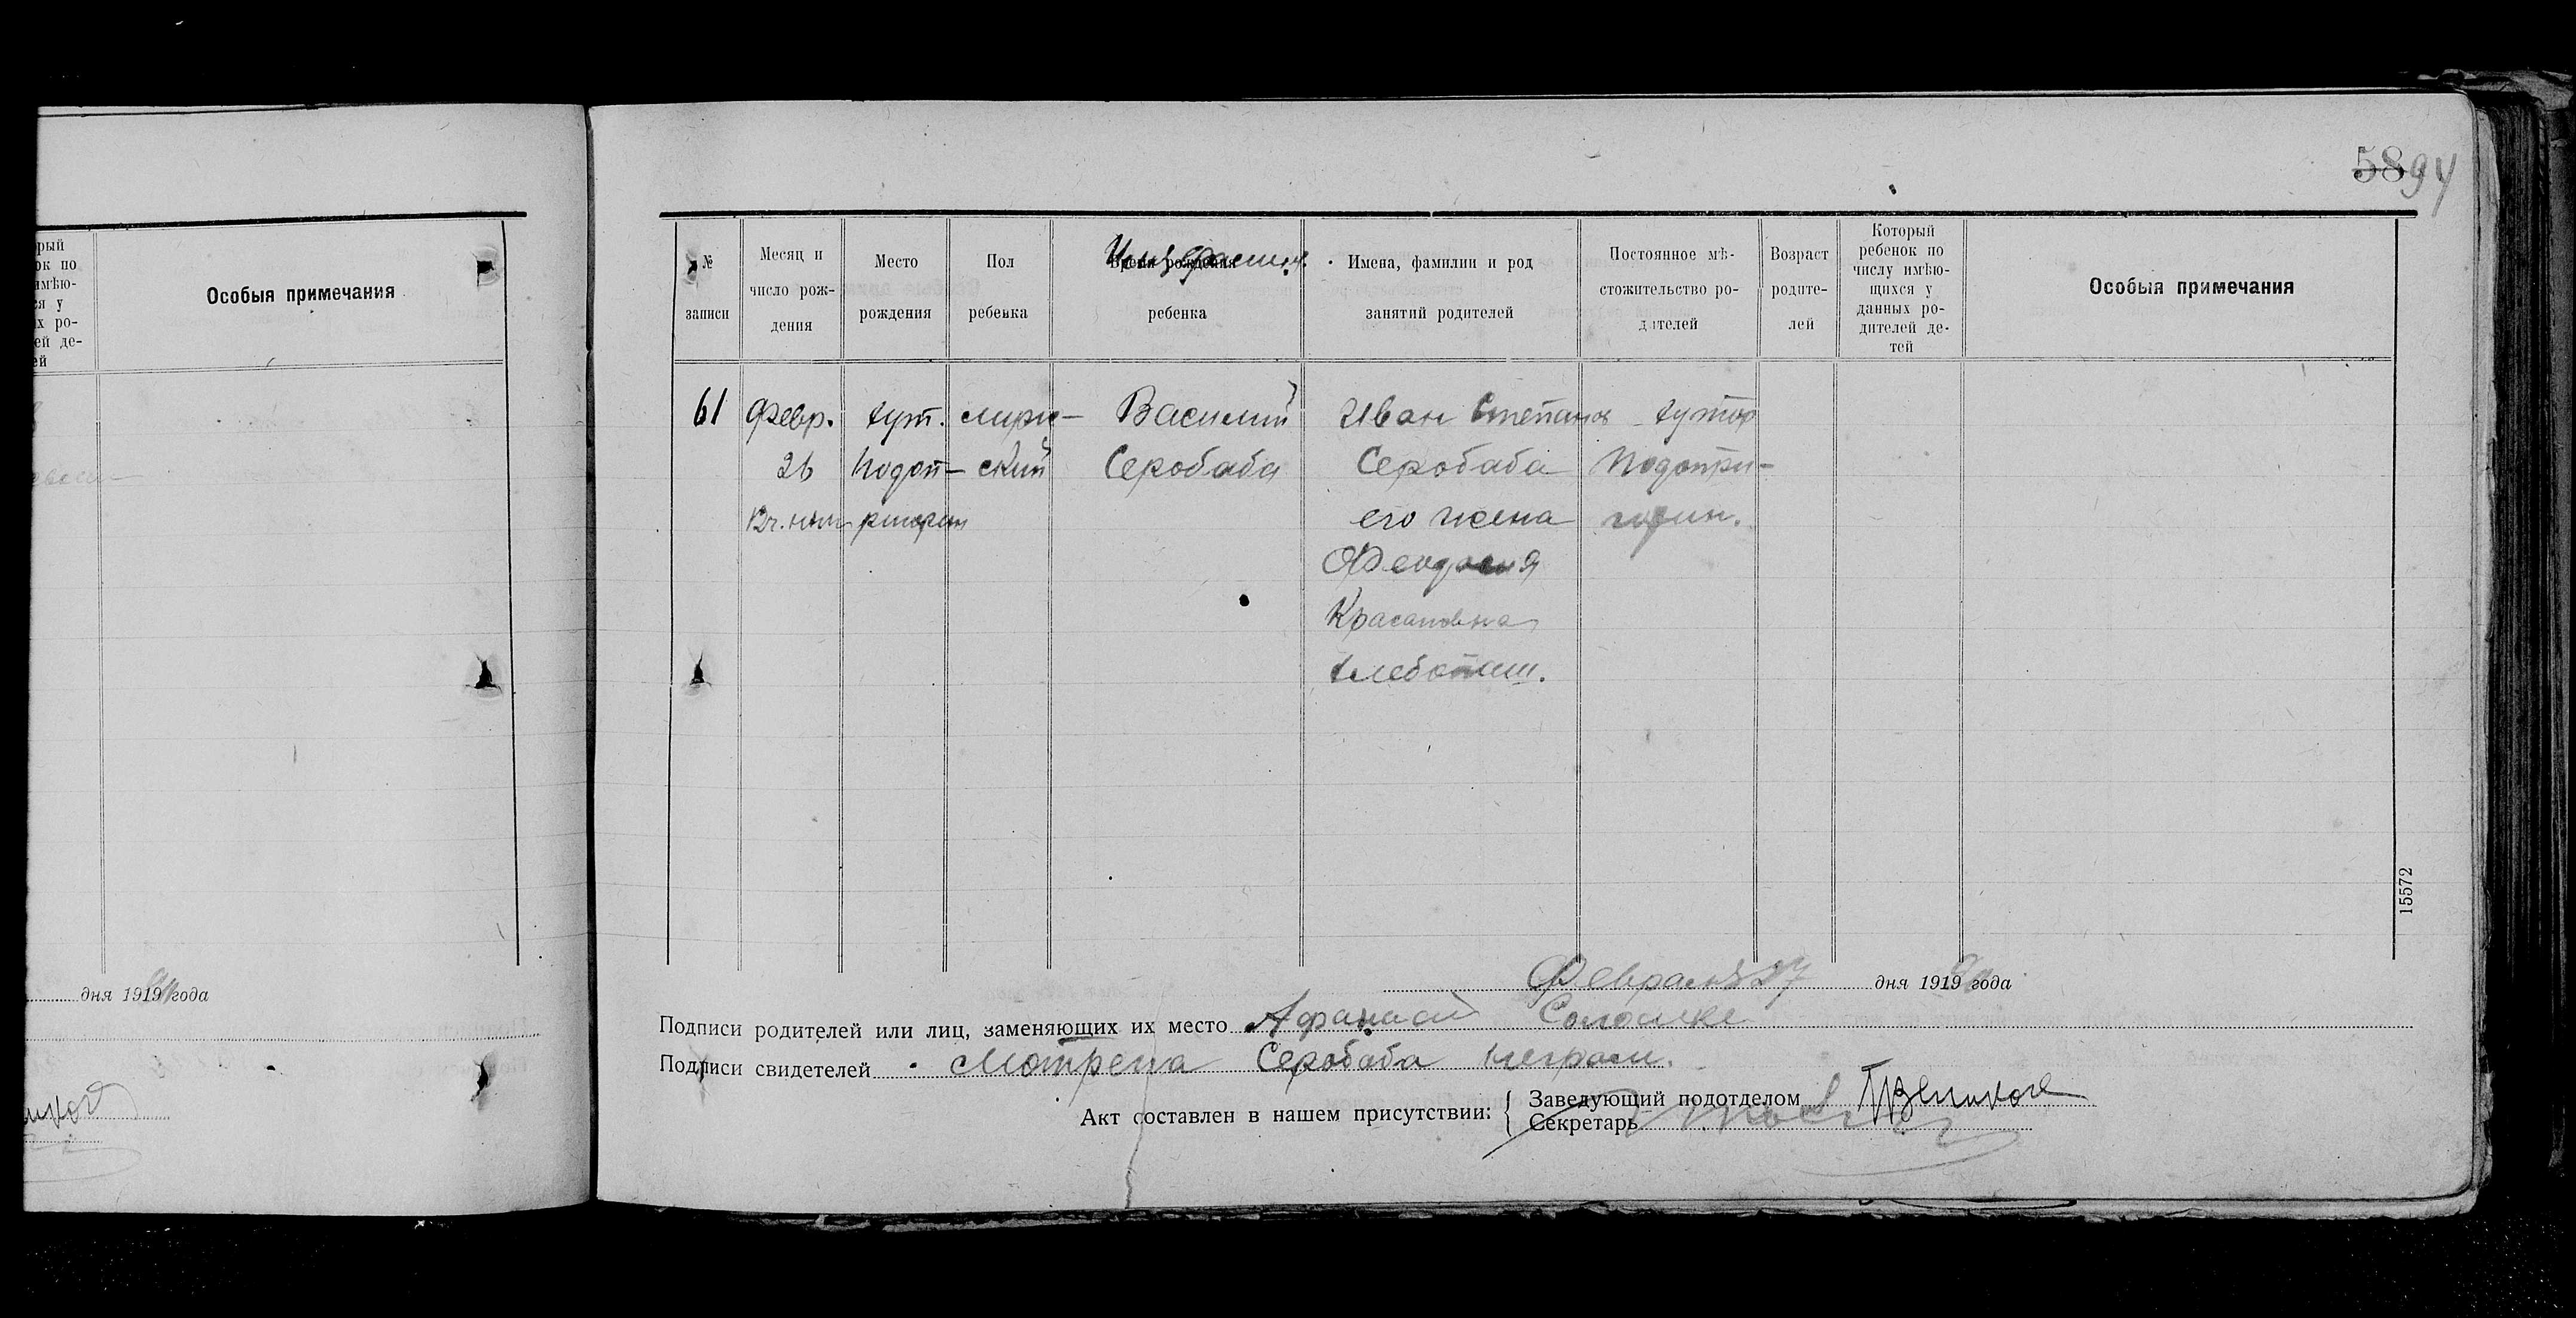 5894
рый
ок по
имѣю-
ся у
х ро-
ей де-
ей
Особыя примечания
дня 1919 года
№
записи
Месяц и
число рож-
дения
Место
рождения
Пол
ребенка
Время рождения
Имя, фамил.
ребенка
Имена, фамилии и род
занятий родителей
Постоянное мѣ-
стожительство ро-
дителей
Возраст
родите-
лей
Который
ребенок по
числу имѣю-
щихся у
данных ро-
дителей де-
тей
Особыя примечания
61 Февр. хут. мужс- Василий Иван Степанов хутор
26 Подоп- ский Серобаба Серобаба Подопри-
его жена
Феодосия
Хлебопаш.
15572
Февраля 27 дня 1919 года
Подписи родителей или лиц, заменяющих их место Афанасий
Подписи свидетелей Мотрена Серобаба неграм.
Акт составлен в нашем присутствии: Заведующий подотделом
Секретарь